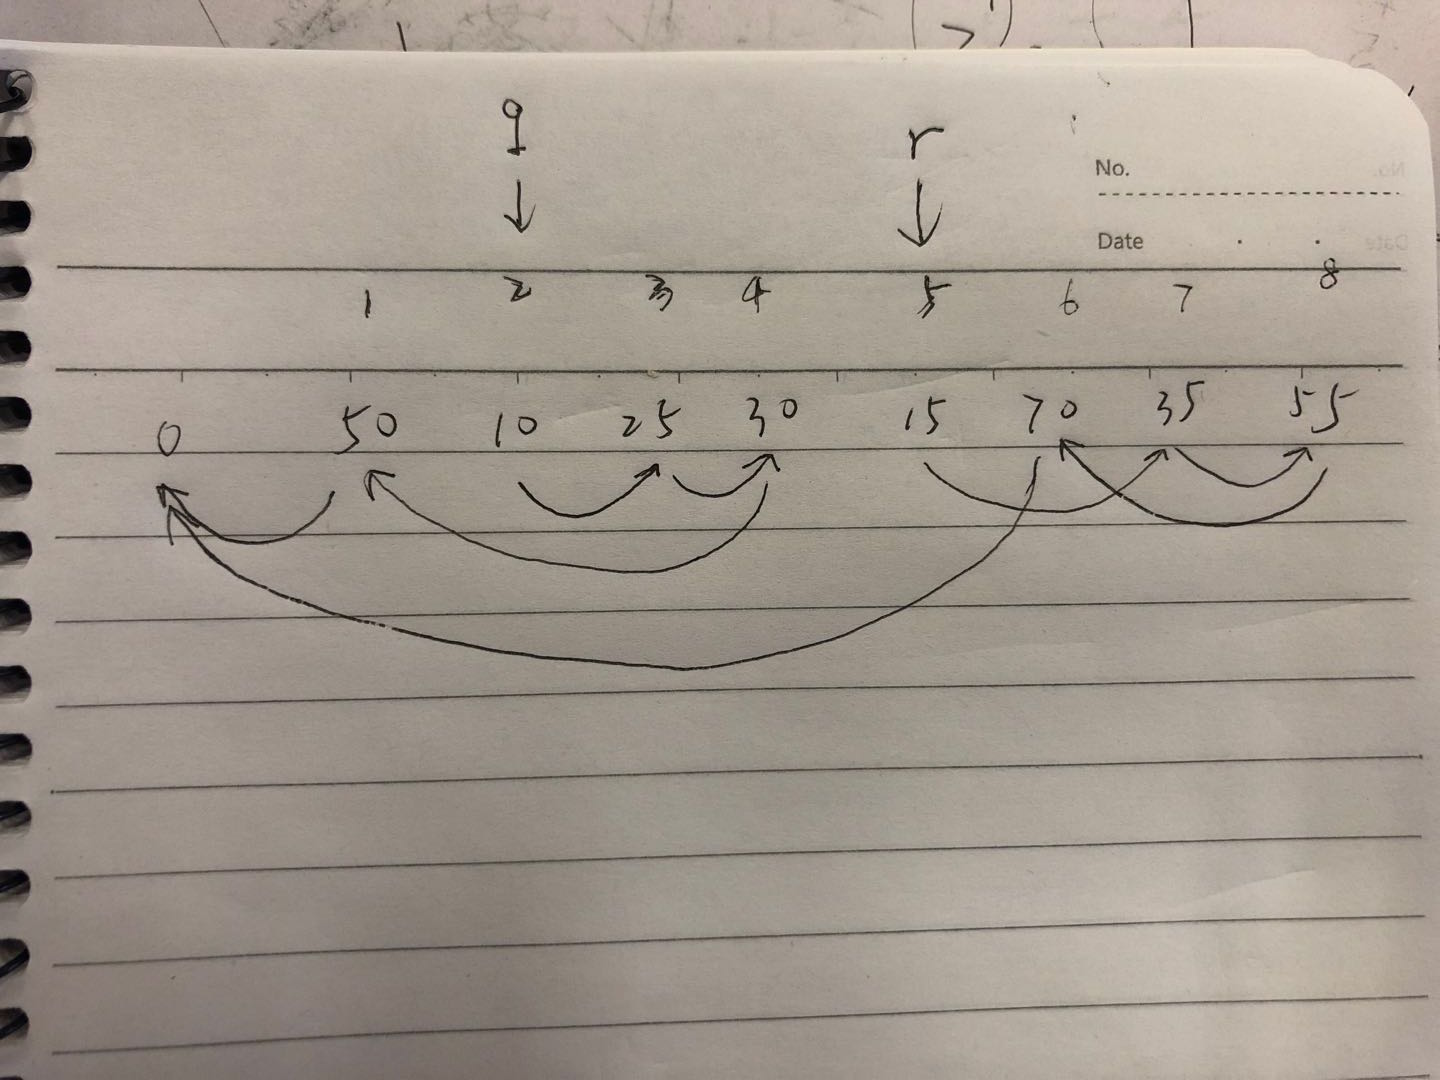 q r
No.
Date
1 2 3 4 5 6 7 8
0 50 10 25 30 15 70 35 55